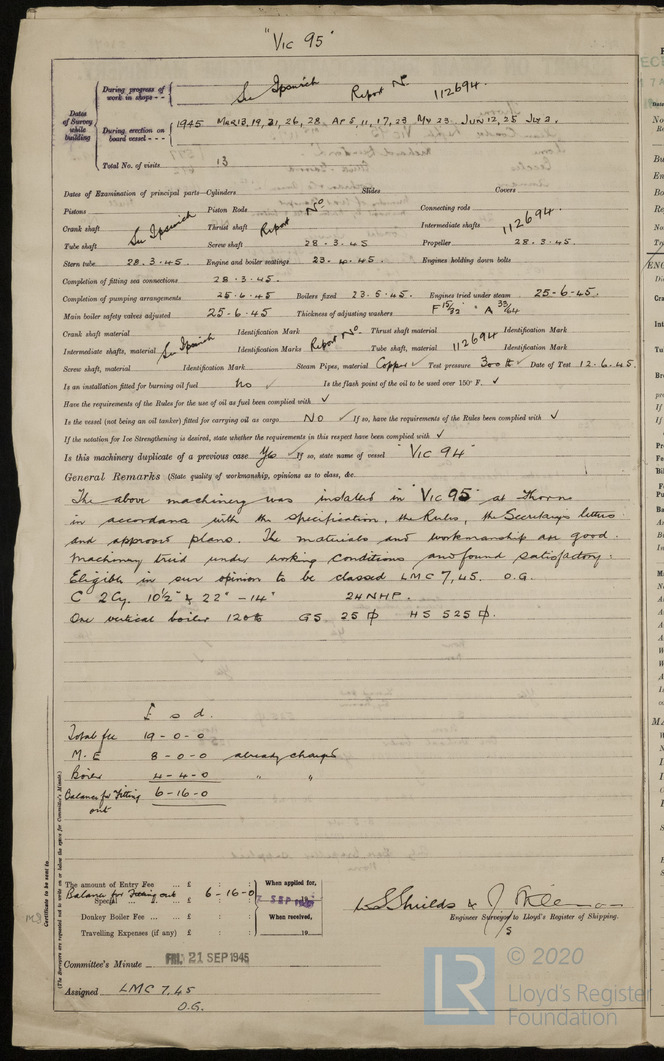 "VIC 95"
Dates of Survey while building
During progress of work in shops - -
See Ipswich Report No 112694.
During erection on board vessel - - -
1945 Mar 13, 19, 21, 26, 28 Ap 5, 11, 17, 23 My 23 Jun 12, 25 Jly 2.
Total No. of visits 13
Dates of Examination of principal parts—Cylinders Slides Covers
Pistons Piston Rods Connecting rods
Crank shaft See Ipswich Thrust shaft Report No Intermediate shafts 112694.
Tube shaft Screw shaft 28.3.45 Propeller 28.3.45.
Stern tube 28.3.45. Engine and boiler seatings 23.4.45. Engines holding down bolts
Completion of fitting sea connections 28.3.45
Completion of pumping arrangements 25.6.45 Boilers fixed 23.5.45. Engines tried under steam 25-6-45.
Main boiler safety valves adjusted 25-6-45 Thickness of adjusting washers F 15/32" A 33/64
Crank shaft material Identification Mark Thrust shaft material Identification Mark
Intermediate shafts, material See Ipswich Identification Marks Report No. Tube shaft, material 112694 Identification Mark
Screw shaft, material Identification Mark Steam Pipes, material Copper ✓ Test pressure 300 lb ✓ Date of Test 12.6.45.
Is an installation fitted for burning oil fuel No ✓ Is the flash point of the oil to be used over 150° F. ✓
Have the requirements of the Rules for the use of oil as fuel been complied with ✓
Is the vessel (not being an oil tanker) fitted for carrying oil as cargo No ✓ If so, have the requirements of the Rules been complied with ✓
If the notation for Ice Strengthening is desired, state whether the requirements in this respect have been complied with ✓
Is this machinery duplicate of a previous case Yes ✓ If so, state name of vessel "VIC 94"
General Remarks (State quality of workmanship, opinions as to class, &c.
The above machinery was installed in "VIC 95" at Thorne
in accordance with the specification, the Rules, the Secretary's letters
and approved plans. The materials and workmanship are good.
Machinery tried under working conditions and found satisfactory.
Eligible in our opinion to be classed LMC 7,45. O.G.
C 2Cy. 10½" & 22" – 14" 24 NHP.
One vertical boiler 120 lb GS 25 ф HS 525 ф.
£ s d.
Total fee 19-0-0
M.E 8-0-0 already charged
Boiler 4-4-0 " "
Balance for Fitting out 6-16-0
(The Surveyors are requested not to write on or below the space for Committee's Minute.)
Certificate to be sent to
The amount of Entry Fee ... £ : :
Balance for Fitting out
Special ... ... £ 6-16-0
Donkey Boiler Fee ... ... £ : :
Travelling Expenses (if any) £ : :
When applied for,
SEP
When received,
19
W S Shields &
Engineer Surveyors to Lloyd's Register of Shipping.
Committee's Minute FRI. 21 SEP 1945
Assigned LMC 7,45
O.G.
LR
© 2020
Lloyd's Register
Foundation